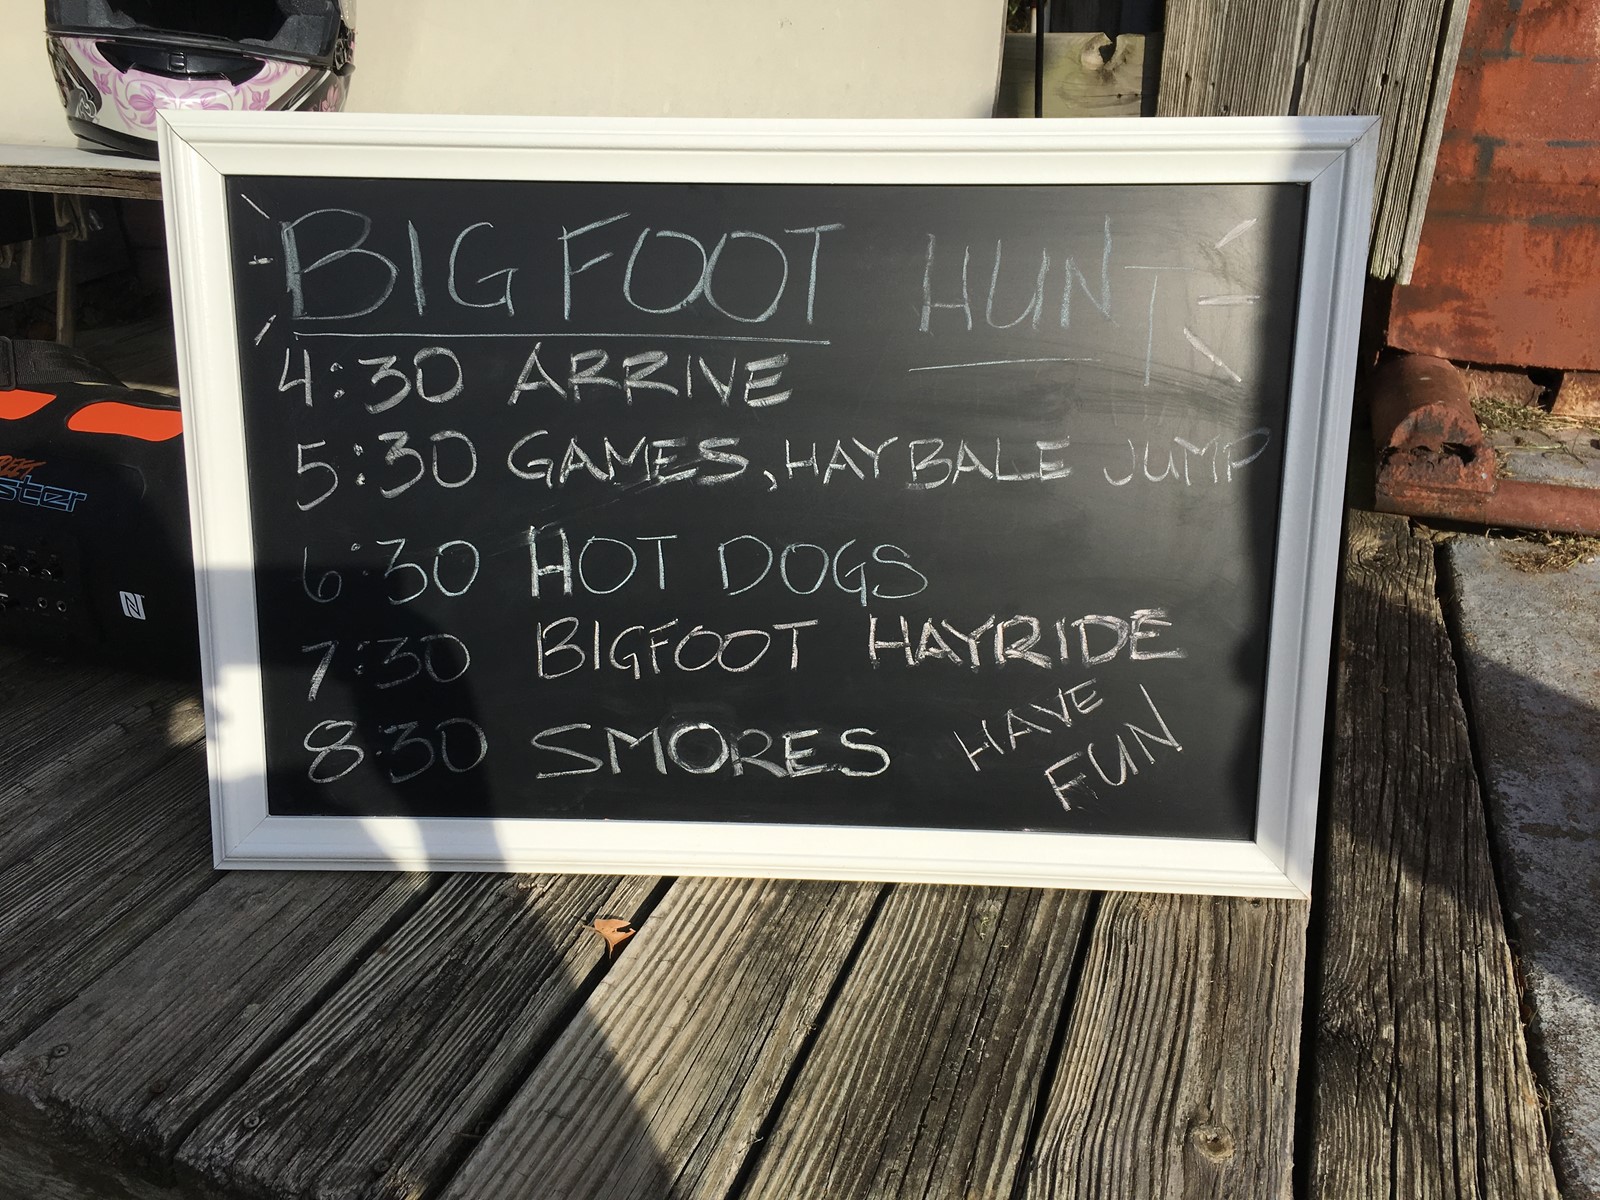 BIGFOOT HUNT
4:30 ARRIVE
5:30 GAMES, HAY BALE JUMP
6:30 HOT DOGS
7:30 BIGFOOT HAYRIDE
8:30 SMORES
HAVE
FUN